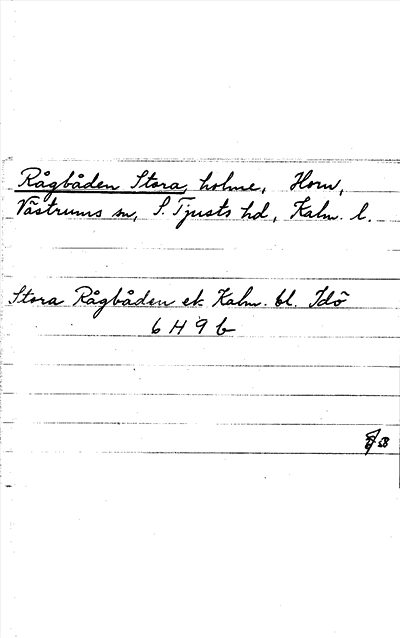 Rågbåden Stora, holme, Horn,
Västrums sn, S. Tjusts hd, Kalm. l.
Stora Rågbåden ek. Kalm. bl. Idö
6 H 9 b